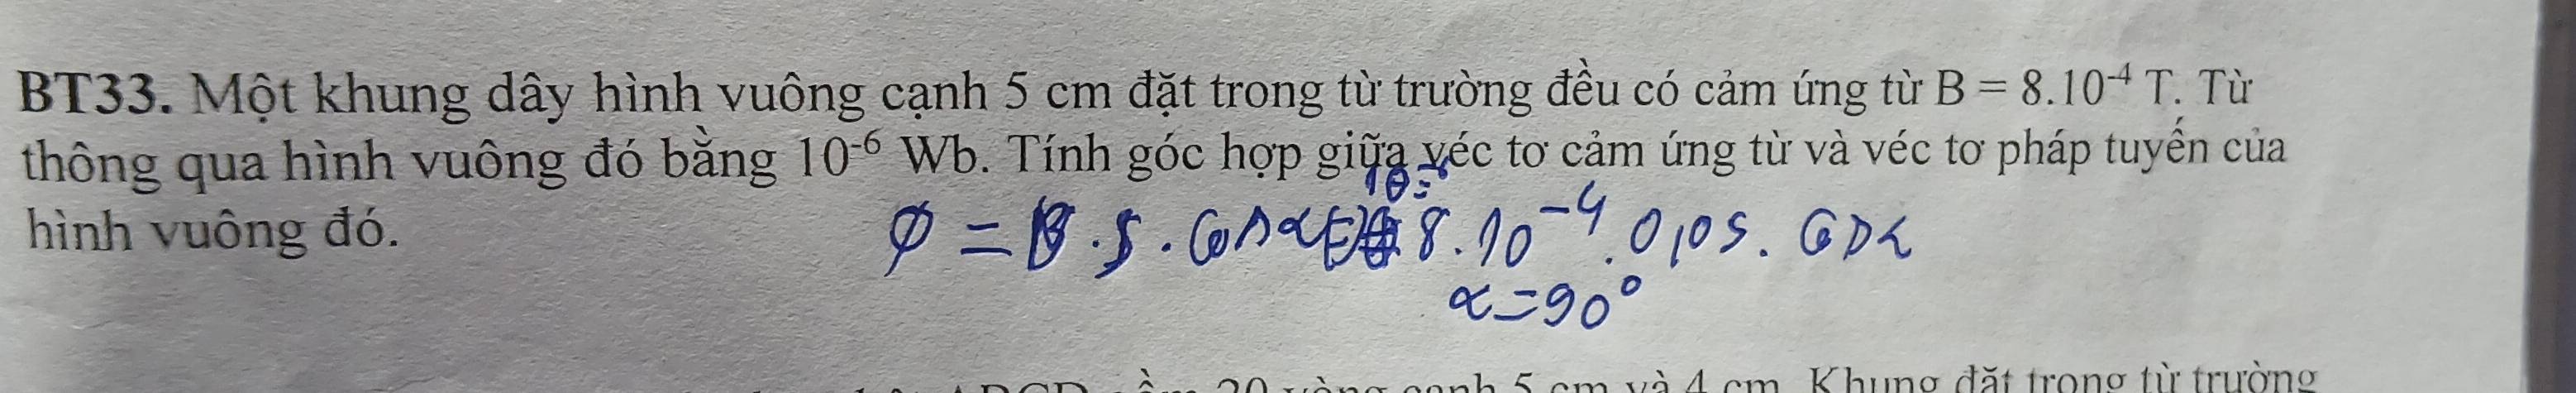 BT33. Một khung dây hình vuông cạnh 5 cm đặt trong từ trường đều có cảm ứng từ B = 8.10⁻⁴ T. Từ
thông qua hình vuông đó bằng 10⁻⁶ Wb. Tính góc hợp giữa véc tơ cảm ứng từ và véc tơ pháp tuyến của
hình vuông đó.
φ = B.S.cosα 8.10⁻⁴.0,05.cosα
α=90°
5 cm và 4 cm. Khung đặt trong từ trường